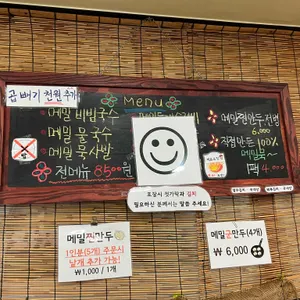 곱빼기 천원 추가
Menu
메밀 비빔국수
메밀 물국수
메밀 묵사발
전메뉴 8500원
메밀찐만두 전병
6,000
직접만든 100%
메밀묵
1팩 4,000
포장시 젓가락과 김치
필요하신 분께서는 말씀 주세요!
메밀찐만두
1인분(5개) 주문시
낱개 추가 가능!
₩1,000 / 1개
메밀군만두(4개)
₩ 6,000